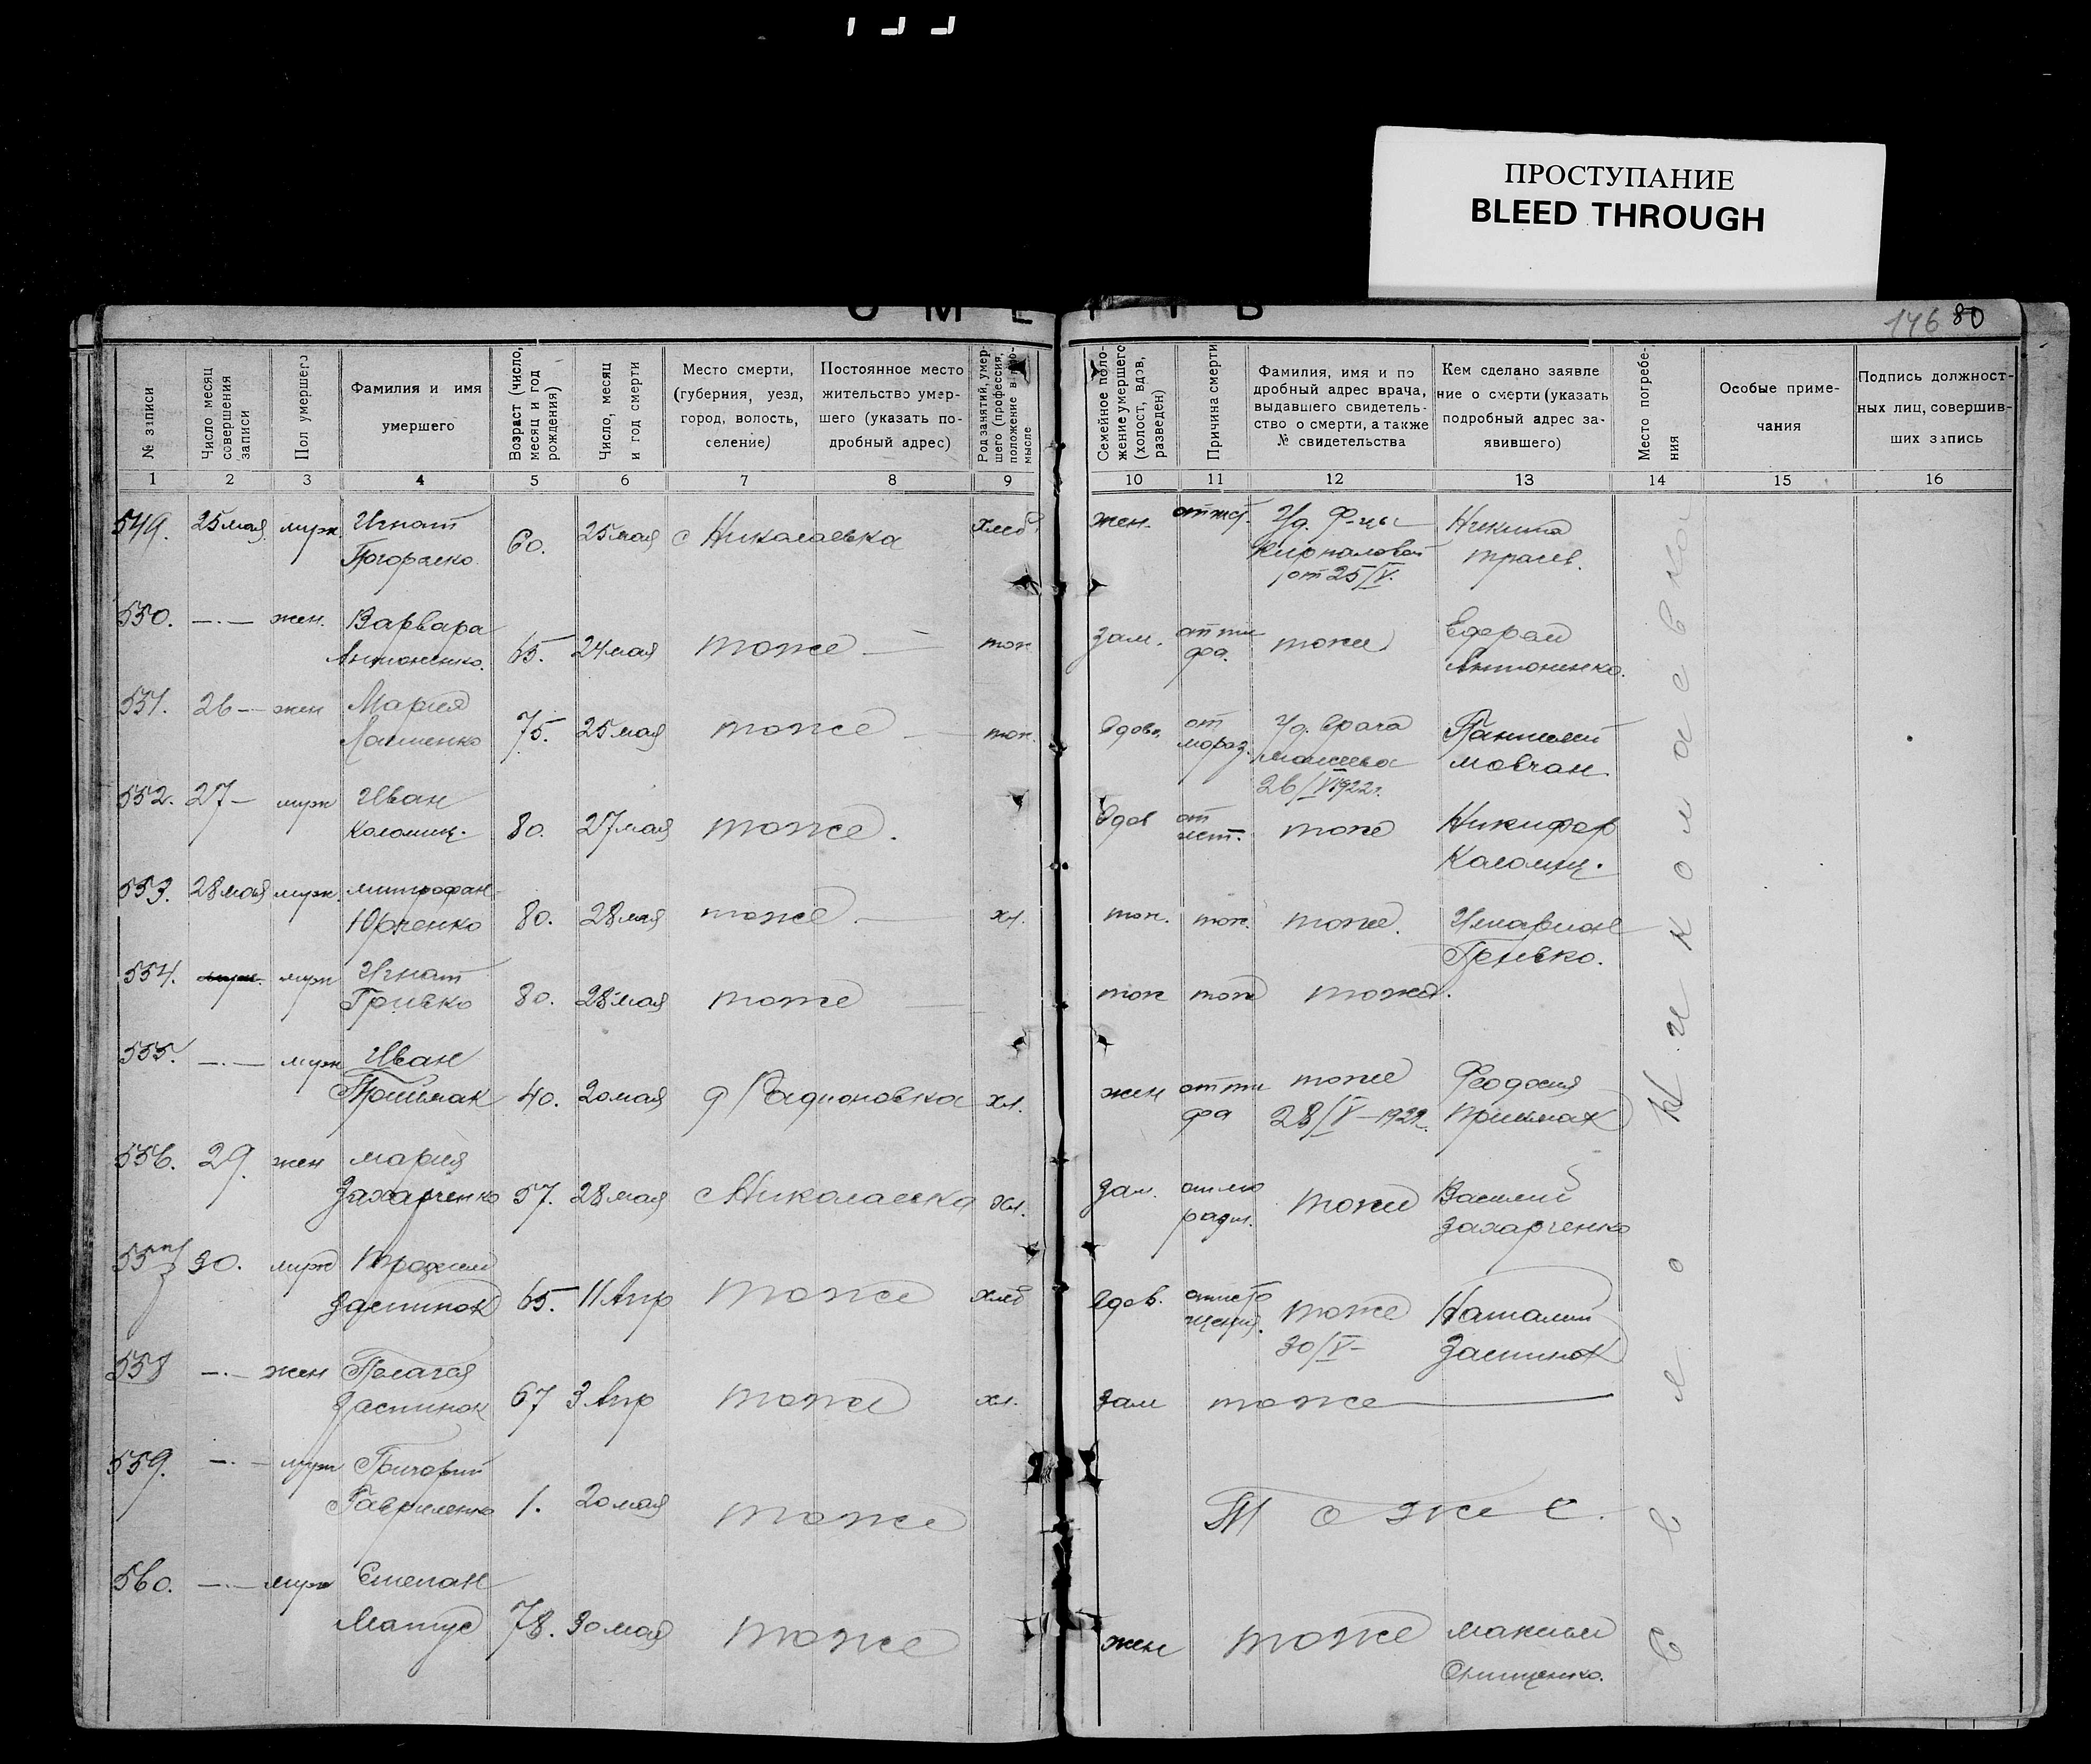 ПРОСТУПАНИЕ
BLEED THROUGH
146 80
№ записи
Число месяц совершения записи
Пол умершего
Фамилия и имя умершего
Возраст (число, месяц и год рождения)
Число, месяц и год смерти
Место смерти, (губерния, уезд, город, волость, селение)
Постоянное место жительство умершего (указать подробный адрес)
Род занятий, умершего (профессия, положение в промысле
Семейное положение умершего (холост, вдов, разведен)
Причина смерти
Фамилия, имя и подробный адрес врача, выдавшего свидетельство о смерти, а также № свидетельства
Кем сделано заявление о смерти (указать подробный адрес заявившего)
Место погребения
Особые примечания
Подпись должностных лиц, совершивших запись
1 2 3 4 5 6 7 8 9 10 11 12 13 14 15 16
549. 25 мая муж. Игнат
60. 25 мая с Николаевка хлеб
жен. Уд. Ф-цы Никита
от 25/V.
550. —·— жен. Варвара
Антоненко. 65. 24 мая тоже — тож.
зам. от тифа. тоже
Антоненко.
551. 26 — жен Мария
75. 25 мая тоже — тож.
вдова от Уд. врача
26/V 1922 г. Мовчан.
552. 27 — муж Иван
Коломиц. 80. 27 мая тоже.
вдов от ист. тоже Никифор
Коломиц.
553. 28 мая муж. Митрофан
Юрченко 80. 28 мая тоже — хл.
тож. тож. тоже.
554. муж Игнат
Гривко 80. 28 мая тоже —
тож тож тоже.
555. —·— муж Иван
Приймак 40. 20 мая д Радионовка хл.
жен от тифа тоже Феодосия
28/V — 1922 г. Приймак
556. 29. жен Мария
Захарченко 57. 28 мая с Николаевка хл.
зам. тоже Василий
Захарченко
557 30. муж Трофим
Застинок 65. 11 Апр тоже хлеб
вдов. от истощения. тоже Наталия
30/V — Застинок
558 —·— жен Пелагея
Застинок 67 3 Апр тоже хл.
зам тоже —
559. —·— муж Григорий
Гавриленко 1. 20 мая тоже
Тоже.
560. —·— муж Степан
Матус 78. 30 мая тоже
жен тоже Максим
Онищенко.
Село Николаевка